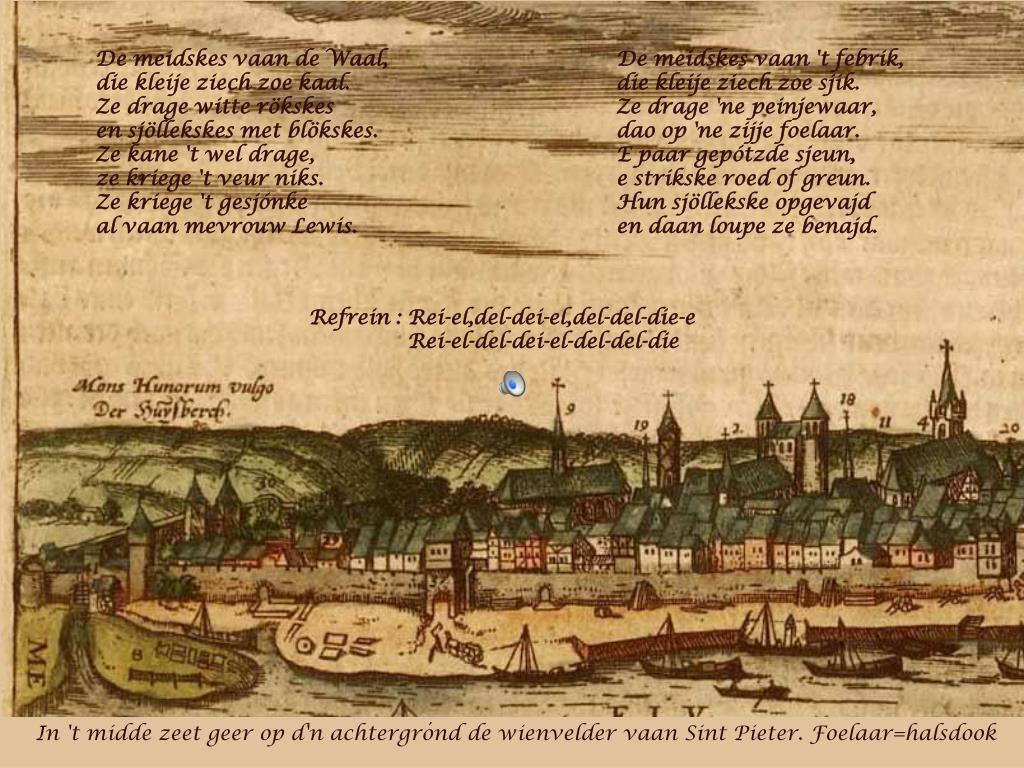 De meidskes vaan de Waal,
die kleije ziech zoe kaal.
Ze drage witte rökskes
en sjöllekskes met blökskes.
Ze kane 't wel drage,
ze kriege 't veur niks.
Ze kriege 't gesjónke
al vaan mevrouw Lewis.
De meidskes vaan 't febrik,
die kleije ziech zoe sjik.
Ze drage 'ne peinjewaar,
dao op 'ne zijje foelaar.
E paar gepótzde sjeun,
e strikske roed of greun.
Hun sjöllekske opgevajd
en daan loupe ze benajd.
Refrein : Rei-el,del-dei-el,del-del-die-e
Rei-el-del-dei-el-del-del-die
Mons Hunorum vulgo
Der Huÿsberch.
9
19
2.
18
11
4
20
30
29
8
ME
In 't midde zeet geer op d'n achtergrónd de wienvelder vaan Sint Pieter. Foelaar=halsdook